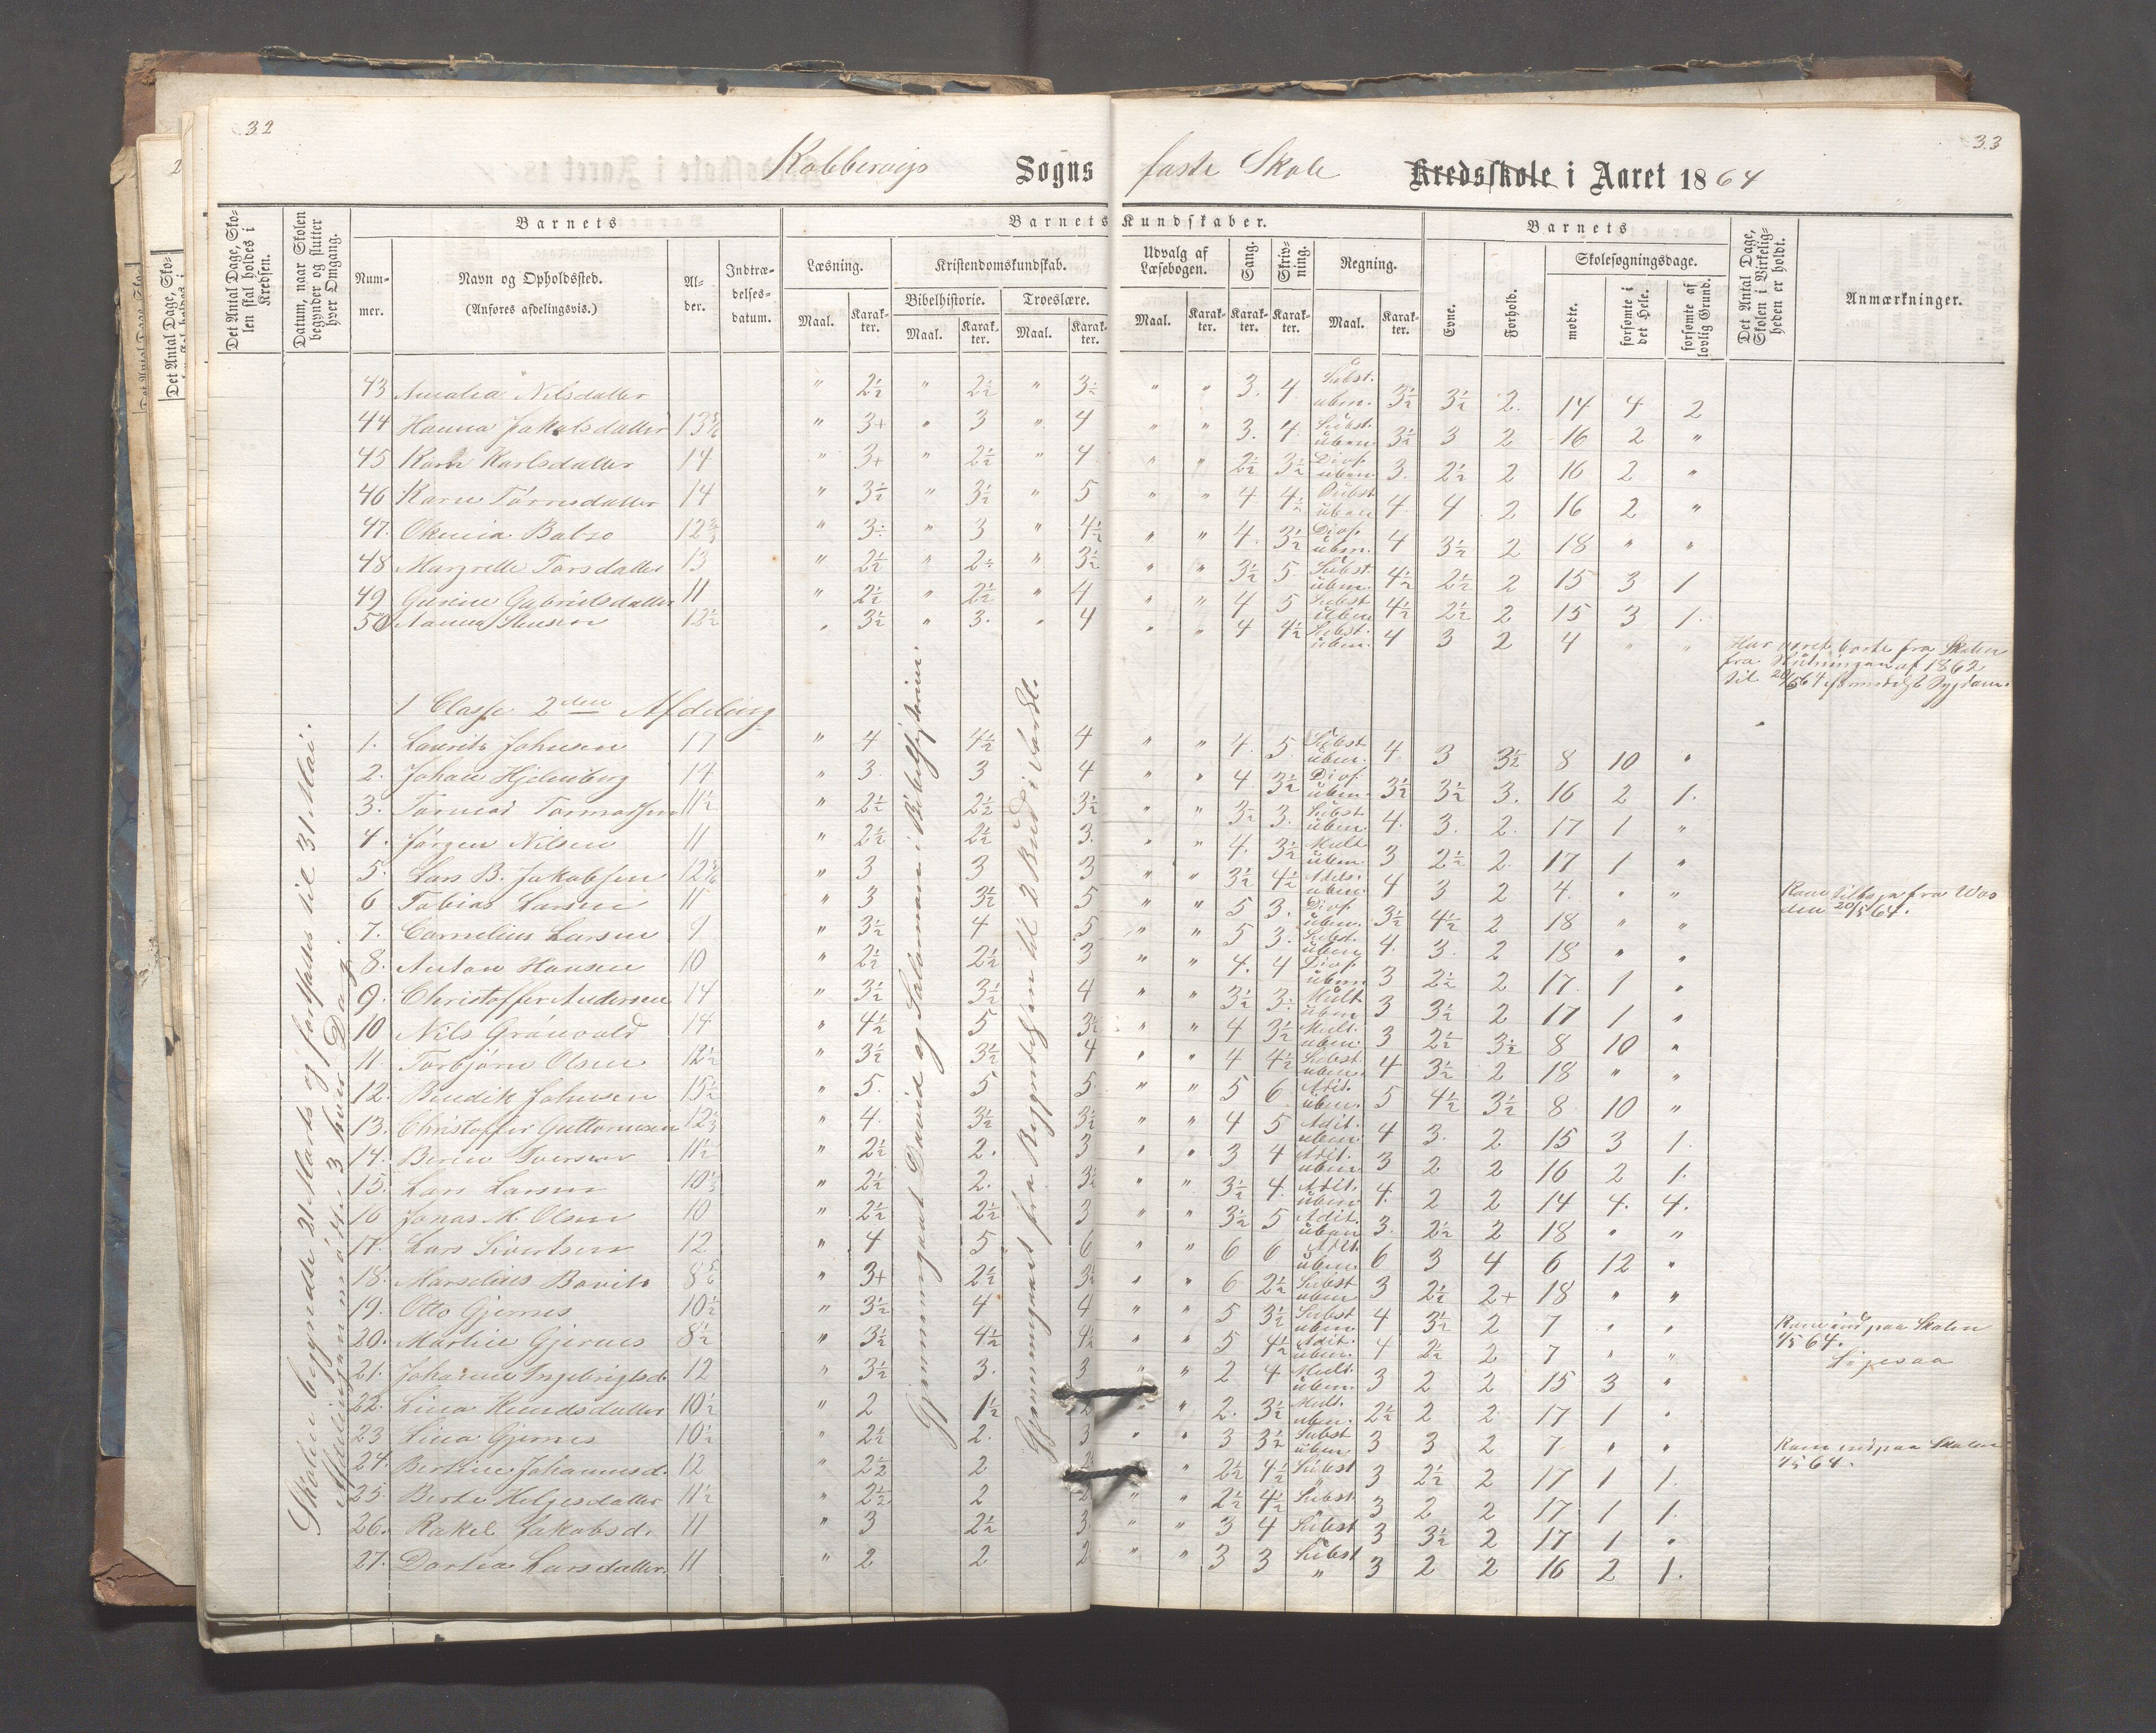 32
33
Kobbervigs Sogns faste Skole Kredsskole i Aaret 1864
Det Antal Dage, Skolen skal holdes i Kredsen.
Datum, naar Skolen begynder og slutter hver Omgang.
Barnets
Nummer.
Navn og Opholdssted.
(Anføres afdelingsvis.)
Alder.
Indtrædelsesdatum.
Barnets Kundskaber.
Læsning.
Maal. Karakter.
Kristendomskundskab.
Bibelhistorie.
Maal. Karakter.
Troeslære.
Maal. Karakter.
Udvalg af Læsebogen.
Maal. Karakter.
Sang.
Karakter.
Skrivning.
Karakter.
Regning.
Maal. Karakter.
Barnets
Evne.
Forhold.
Skolesøgningsdage.
mødte.
forsømte i det Hele.
forsømte af lovlig Grund.
Det Antal Dage, Skolen i Virkeligheden er holdt.
Anmærkninger.
43 Amalia Nilsdatter " 2½ " 2½ " 3÷ " " 3. 4 Subst. uben. 3½ 3½ 2. 14 4 2
44 Hanna Jakobsdatter 13 5/6 " 3+ " 3 " 4 " " 3. 4 Subst. uben. 3½ 3 2 16 2 "
45 Karn Karlsdatter 14 " 3+ " 2½ " 4 " " 2½ 3½ Divis. uben. 3. 2½ 2 16 2 "
46 Karn Tørresdatter 14 " 3½ " 3½ " 5 " " 4 4½ Subst uben 4 4 2 16 2 "
47. " 3÷ " 3 " 4½ " " 4. 3½ Divis. uben. 4 3½ 2 18 " "
48 Margrethe Torsdatter 13 " 2½ " 2÷ " 3½ " " 3½ 5 Subst uben. 4½ 2½ 2 15 3 1
49 Gurine Gabrielsdatter 11 " 2½ " 2½ " 4 " " 4 5 Subst uben 4½ 2½ 2 15 3 1.
50 " 3½ " 3. " 4 " " 4 4½ Subst. uben. 4 3 2 4 " "
Har været borte fra Skolen
fra Slutningen af 1862
til 20/5 64 formedelst Sygdom.
1 Classe 2den Afdeling
1. Laurits Johnsen 17 " 4 4½ 4 " " 4. 5 Subst uben. 4. 3 3½ 8 10 "
2. Johan Hjelmberg 14 " 3. 3 4 " " 4 3½ Divis. uben. 3½ 3½ 3. 16 2 1.
3. Tormod Tormodsen 11½ " 2½ 2½ 3½ " " 3½ 3. Subst uben. 4. 3. 2. 17 1 "
4. Jørgen Nilsen 11 " 2½ 2½ 3. " " 4. 3½ Mult uben. 3 2½ 2. 17 1 "
5. Lars B. Jakobsen 12 5/6 " 3 3 3 " " 3½ 4½ Adit. uben. 4 3 2 4. " "
Kom tilbage fra Vos
den 20/5 64.
6 Tobias Larsen 11 " 3 3½ 5 " " 5 3. Divis. uben. 3½ 4½ 2 18 " "
7. Cornelius Larsen 9 " 3½ 4 5 " " 5 3. Subst. uben 4. 3. 2 18 " "
8. Anton Hansen 10 " 2½ 2½ 3 " " 4. 4 Divis. uben 3 2½ 2 17. 1 "
9. Christoffer Andersen 14 " 3½ 3½ 4 " " 3½ 3. Mult. uben 3 3½ 2 17 1 "
10 Nils Grønvold 14 " 4½ 5 3½ " " 4 3½ Mult. uben. 3 2½ 3½ 8 10 "
11. Torbjørn Olsen 12½ " 3½ 3½ 4 " " 4 4½ Subst. uben. 4 3½ 2 18 " "
12. Bendik Johnsen 15½ " 5. 5 5. " " 5 6 Adit. uben. 5 4½ 3½ 8 10 "
13. Christoffer Guttormsen 12⅓ " 4. 3½ 3½ " " 4 5 Adit. uben. 4 3. 2 15 3 1.
14. 11½ " 2½ 2. 3 " " 3 4 Adit. uben 3 2 2 16 2 1.
15. Lars Larsen 10⅓ " 2½ 2. 3½ " " 3½ 4. Adit. uben. 4. 2 2 14 4. 4.
16 Jonas M. Olsen 10 " 2½ 2½ 3 " " 3½ 5 Adit. uben 3. 2½ 2 18 " "
17. Lars Sivertsen 12 " 4 5 6 " " 6 6 Adit. uben. 6 3 4 6 12 "
18. Marselius Bovits 8 5/6 " 3+ 2½ 3½ " " 6 2½ Subst uben 3 2½ 2+ 18 " "
19. Otto Gjernes 10½ " 3½ 4 4 " " 5 3½ Subst uben 4 3½ 2 7 " "
Kom ind paa Skolen
4/5 64.
20. Martin Gjernes 8½ " 3½ 4½ 4½ " " 5 4½ Adit. uben. 4 2½ 2 7 " "
Ligesaa
21. Johanne Ingebrigtsd. 12 " 3½ 3. 3 " " 2 4 Mult. uben. 3 2 2 15 3 "
22. Lina Knudsdatter 10½ " 2 1½ 2 " " 2. 3½ Mult. uben. 2½ 2 2 17 1 "
23 Lina Gjernes 10½ " 2½ 2. 3 " " 3 3½ Subst uben. 3 3 2 7 " "
Kom ind paa Skolen
4/5 64.
24. Bertine Johannesd. 12 " 2½ 2 " 2½ 4½ Subst " 3 2½ 2 17 1 1.
25. Berte Helgesdatter 11½ " 2½ 2 2 " " 2½ 4½ Subst. " 3 2 2 17 1 1.
26. Rakel Jakobsd. 11 " 3 2½ 3 " " 3 4 Subst " 3 3½ 2 17 1 "
27. Dortea Larsdatter. 11 " 2 2 2 " " 3 3 Subst " 3 2 2 16 2 1.
Skolen begyndte 21 Marts og fortsattes til 31 Mai.
Afdelingen mødte 3 hver Dag.
Gjennemgaaet David og Salomon i Bibelhistorien.
Gjennemgaaet fra Begyndelsen til 2 Bud i